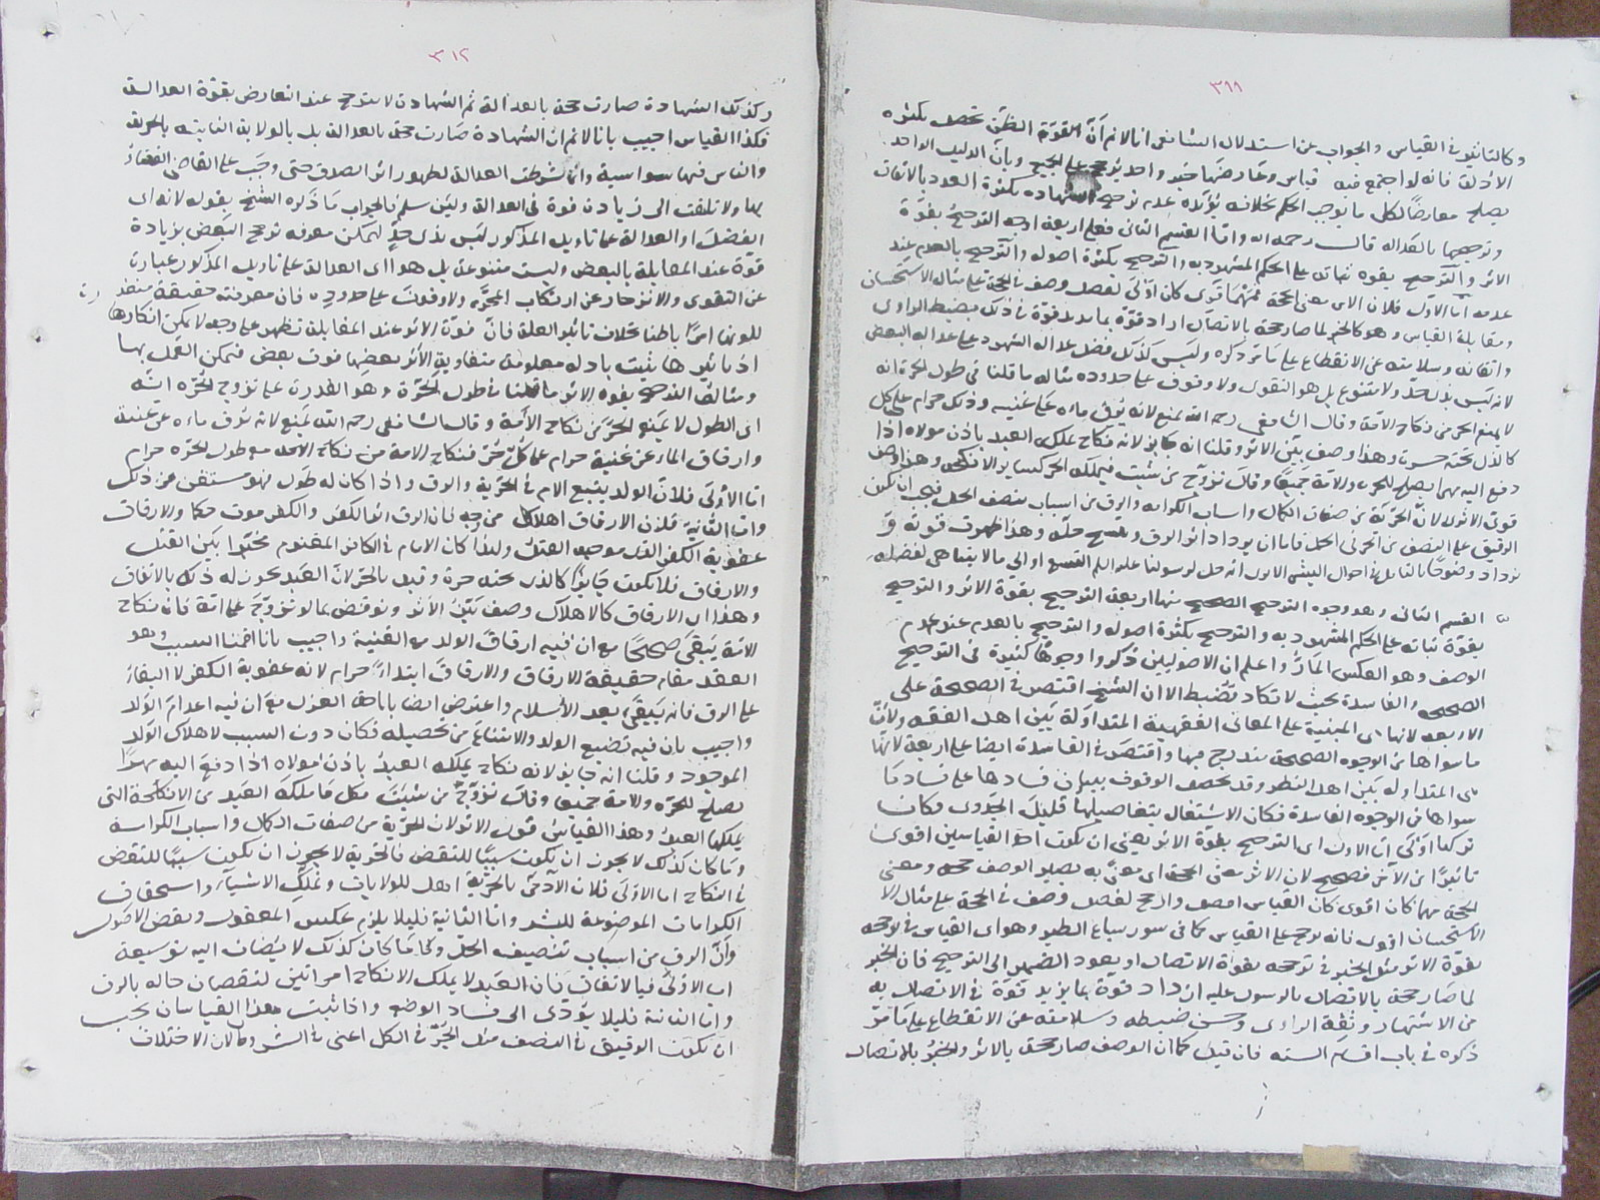 ٣٩٩
وكالتاثير في القياس والجواب عن استدلال الشافعي انا لا نم ان القوة الظن تحصل بكثرة
الادلة فانه لو اجتمع فيه قياس وعارضها خبر واحد يرجح على الجميع وبان الدليل الواحد
يصلح معارضا لكل ما يوجب الحكم بخلافه يؤيده عدم ترجيح الشهاده بكثرة العدد بالاتفاق
وترجحها بالعداله قال رحمه الله واما القسم الثاني فعلى اربعة اوجه الترجيح بقوة
الاثر والترجيح بقوه ثباته على الحكم المشهود به والترجيح بكثرة اصوله والترجيح بالعدم عند
عدمه اما الاول فلان الاثر معنى الحجة فمهما قوى كان اولى لفضل وصف في الحجة على مثال الاستحسان
ومقابلة القياس وهو كالخبر لما صار حجة بالاتصال ازداد قوة بما يزيد قوة في ذلك بضبط الراوي
واتقانه وسلامته عن الانقطاع على ما مر ذكره وليس كذلك فضل عدالة الشهود على عدالة البعض
لانه ليس بذي حد ولا متنوع بل هو التقوى ولا وقوف على حدوده مثاله ما قلنا في طول الحرة انه
لا يمنع الحر من نكاح الامة وقال الشافعي رحمه الله يمنع لانه يرق ماءه على غنيه وذلك حرام على كل
كالذي تحته حرة وهذا وصف بين الاثر وقلنا انه جايز لانه نكاح يملكه العبد باذن مولاه اذا
دفع اليه مهرا يصلح للحرة والامة جميعا وقال تزوج من شئت فيملكه الحر كسائر الانكحة وهذا وصف
قوي الاثر لان الحرية من صفات الكمال واسباب الكرامة والرق من اسباب تنصف الحل فيجب ان يكون
الرقيق على النصف من الحر في الحل فاما ان يزداد اثر الرق ويتسع حله وهذا ظهرت قوته و
يزداد وضوحا بالتامل في احوال البشر الا ترى انه حل لرسولنا عليه السلم التسع او الى ما لا يتناهى لفضله
القسم الثاني وهو وجوه الترجيح الصحيح منها اربعة الترجيح بقوة الاثر والترجيح
بقوة ثباته على الحكم المشهود به والترجيح بكثرة اصوله والترجيح بالعدم عند عدم
الوصف وهو العكس المار واعلم ان الاصوليين ذكروا وجوها كثيرة في الترجيح
الصحيحه والفاسدة بحيث لا تكاد تضبط الا ان الشيخ اقتصر في الصحيحة على
الاربعه لانها هي المبنية على المعاني الفقهية المتداولة بين اهل الفقه ولان
ما سواها من الوجوه الصحيحة مندرج فيها واقتصر في الفاسدة ايضا على اربعة لانها
هي المتداوله بين اهل النظر وقد يحصل الوقوف ببيان فسادها على فساد ما
سواها من الوجوه الفاسدة فكان الاشتغال بتفاصيلها قليل الجدوى فكان
تركها اولى اما الاول اي الترجيح بقوة الاثر يعني ان يكون احد القياسين اقوى
تاثيرا من الاخر فصحيح لان الاثر معنى الحجة اي معنى به يصير الوصف حجة ومعنى
الحجة مهما كان اقوى كان القياس اوصف وارجح لفضل وصف في الحجة على مثال الا
ستحسان اقوى فانه يرجح على القياس كما في سور سباع الطير وهو اي القياس في ترجحه
بقوة الاثر مثل الخبر في ترجحه بقوة الاتصال او يعود الضمير الى الترجيح فان الخبر
لما صار حجة بالاتصال بالرسول عليه ازداد قوة بما يزيد قوة في الاتصال به
من الاشتهار وثقة الراوي وحسن ضبطه وسلامته عن الانقطاع على ما مر
ذكره في باب اقسام السنه فان قيل كما ان الوصف صار حجة بالاثر والخبر بالاتصال
٣١٢
وكذلك الشهادة صارت حجة بالعدالة ثم الشهادة لا تترجح عند التعارض بقوة العدالة
فكذا القياس اجيب بانا لا نم ان الشهادة صارت حجة بالعدالة بل بالولاية الثابتة بالحرية
والناس فيها سواسية وانما شرطت العدالة لظهور اثر الصدق حتى وجب على القاضي القضاء
بها ولا تلتفت الى زيادة قوة في العدالة ولئن سلم فالجواب ما ذكره الشيخ بقوله لانه اي
الفضل او العدالة على تاويل المذكور ليس بذي حد ليمكن معرفة ترجح البعض بزيادة
قوة عند المقابلة بالبعض وليست متنوعة بل هو اي العدالة على تاويل المذكور عبارة
عن التقوى والانزجار عن ارتكاب المحرم ولا وقوف على حدوده فان معرفته حقيقة متعذر
للونها امرا باطنا بخلاف تاثير العلة فان قوة الاثر عند المقابلة تظهر على وجه لا يمكن انكارها
اذ تاثيرها يثبت بادلة معلومة متفاوتة الاثر بعضها فوق بعض فيمكن العمل بها
ومثال الترجيح بقوة الاثر ما قلنا في طول الحرة وهو القدرة على تزوج الحره انه
اي الطول لا يمنع الحر من نكاح الامة وقال الشافعي رحمه الله يمنع لانه يرق ماءه عن غنية
وارقاق الماء عن غنية حرام على كل حر فنكاح الامة مع طول الحره حرام
اما الاولى فلان الولد يتبع الام في الحرية والرق واذا كان له طول فهو مستغن عن ذلك
واما الثانية فلان الارقاق اهلاك من وجه لان الرق اثر الكفر والكفر موت حكما والارقاق
عقوبة الكفر الذي موجبه القتل ولهذا كان الامام في الكافر المغنوم مخيرا بين القتل
والارقاق فلا يكون جايزا كالذي تحته حرة وقيد بالحر لان العبد يجوز له ذلك بالاتفاق
وهذا اي الارقاق كالاهلاك وصف بين الاثر ونوقض بما لو تزوج على امة فان نكاح
الامة يبقى صحيحا مع ان فيه ارقاق الولد مع الغنية واجيب بانا اقمنا السبب وهو
العقد مقام حقيقة الارقاق والارقاق ابتداء حرام لانه عقوبة الكفر لا البقاء
على الرق فانه يبقى بعد الاسلام واعترض ايضا باباحة العزل مع ان فيه اعدام الولد
واجيب بان فيه تضييع الولد والامتناع عن تحصيله فكان دون السبب لاهلاك الولد
الموجود وقلنا انه جايز لانه نكاح يملكه العبد باذن مولاه اذا دفع اليه مهرا
يصلح للحره والامة جميعا وقال تزوج من شئت فكل ما ملكه العبد من الانكحة التي
يملكها العبد وهذا القياس قوي الاثر لان الحرية من صفات الكمال واسباب الكرامة
وما كان كذلك لا يجوز ان يكون سببا للنقص فالحرية لا يجوز ان يكون سببا للنقص
في النكاح اما الاولى فلان الادمى بالحرية اهل للولايات وتملك الاشياء واستحقاق
الكرامات الموضوعة للبشر واما الثانية فليلا يلزم عكس المعقول ونقض الاصول
وان الرق من اسباب تنصيف الحل وكل ما كان كذلك لا يضاف اليه توسيعه
اما الاولى فبالاتفاق فان العبد لا يملك الا نكاح امراتين لنقصان حاله بالرق
واما الثانية فليلا يؤدي الى فساد الوضع واذا ثبت هذا القياسان يجب
ان يكون الرقيق في النصف مثل الحر في الكل اعني في الشروط لان الاختلاف